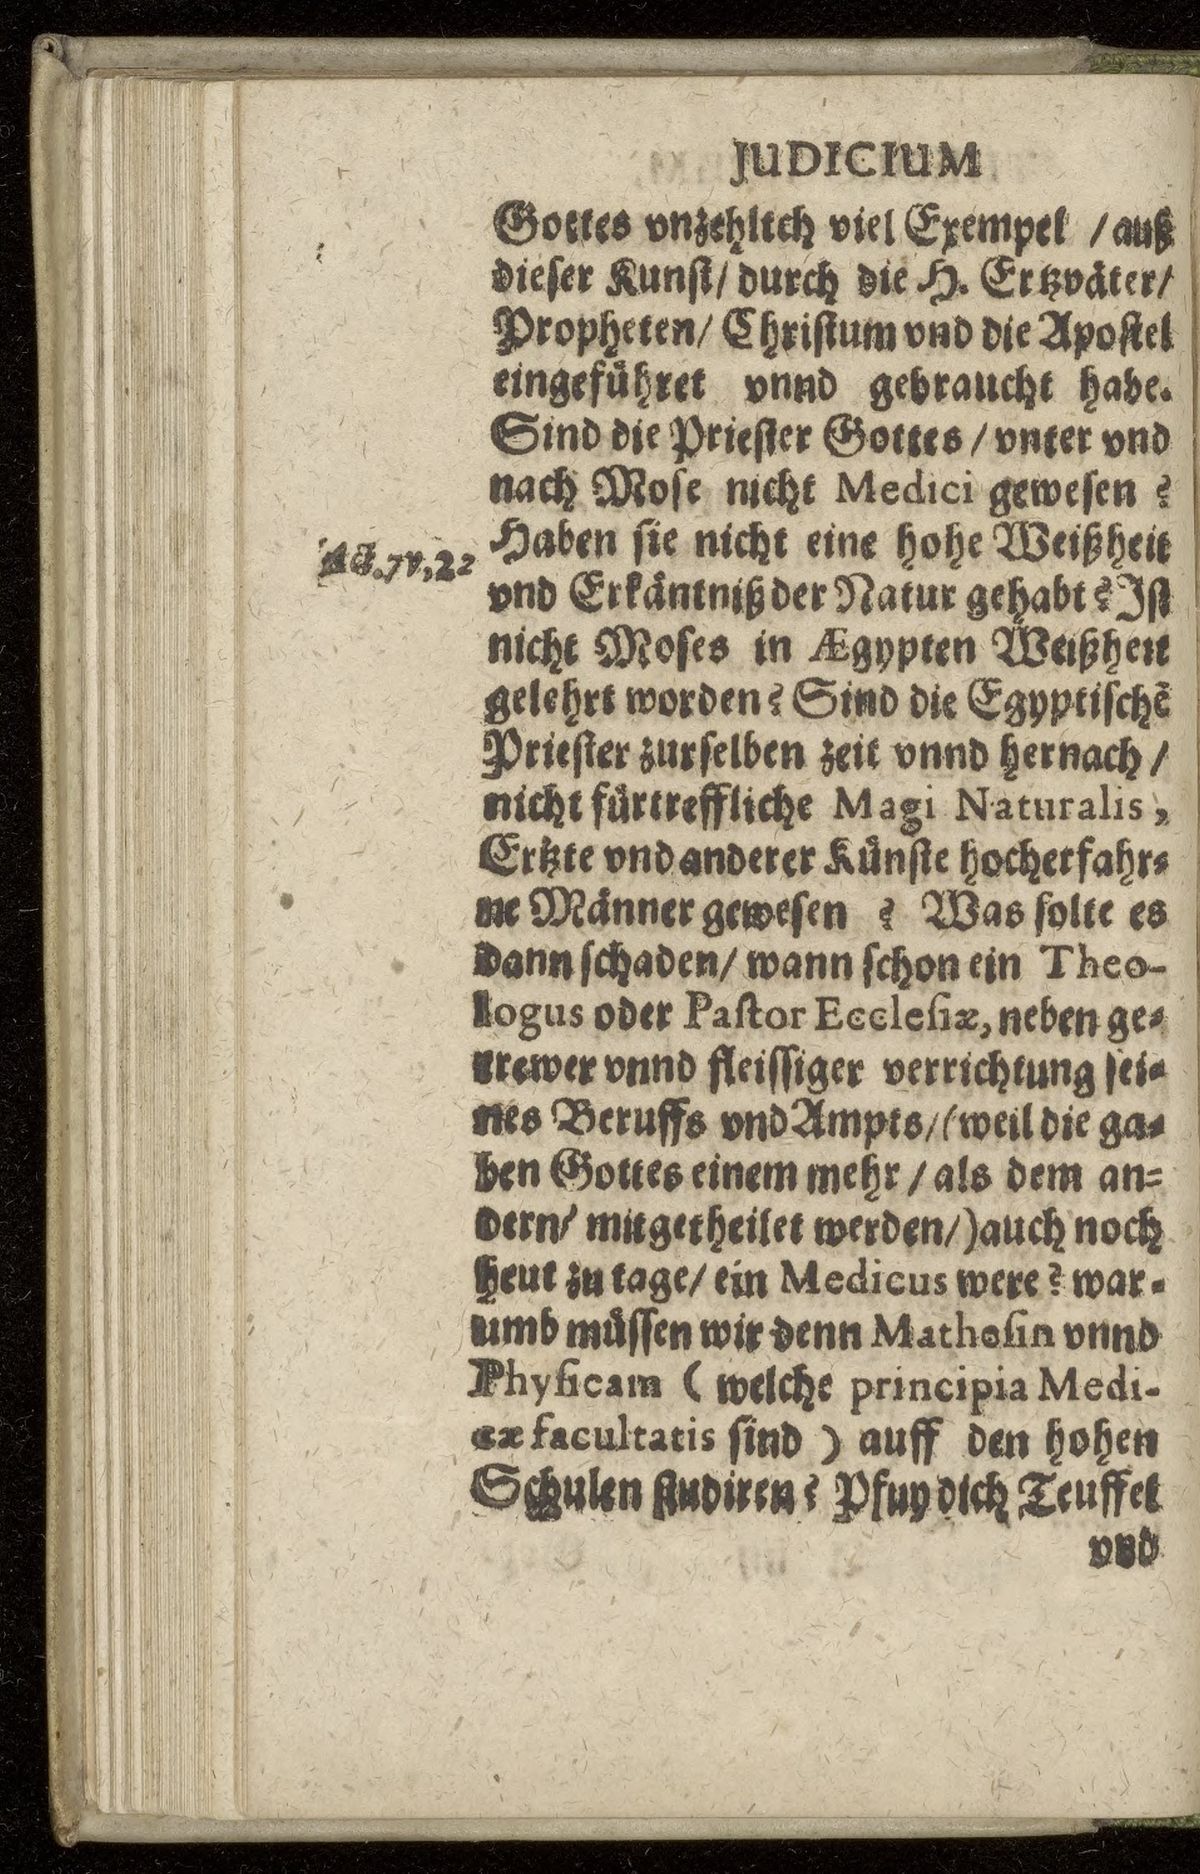 JUDICIUM
Gottes vnzehlich viel Exempel / auß
dieser Kunst / durch die H. Ertzväter /
Propheten / Christum vnd die Apostel
eingeführet vnnd gebraucht habe.
Sind die Priester Gottes / vnter vnd
nach Mose nicht Medici gewesen ?
Haben sie nicht eine hohe Weißheit
Act. 7. v, 22
vnd Erkäntniß der Natur gehabt ? Ist
nicht Moses in Ægypten Weißheit
gelehrt worden ? Sind die Egyptischē
Priester zurselben zeit vnnd hernach /
nicht fürtreffliche Magi Naturalis,
Ertzte vnd anderer Künste hocherfahr-
ne Männer gewesen ? Was solte es
dann schaden / wann schon ein Theo-
logus oder Pastor Ecclesiæ, neben ge-
trewer vnnd fleissiger verrichtung sei-
nes Beruffs vnd Ampts / (weil die ga-
ben Gottes einem mehr / als dem an-
dern / mitgetheilet werden /) auch noch
heut zu tage / ein Medicus were ? war-
umb müssen wir denn Mathesin vnnd
Physicam ( welche principia Medi-
cæ facultatis sind ) auff den hohen
Schulen studiren ? Pfuy dich Teuffel
vnd